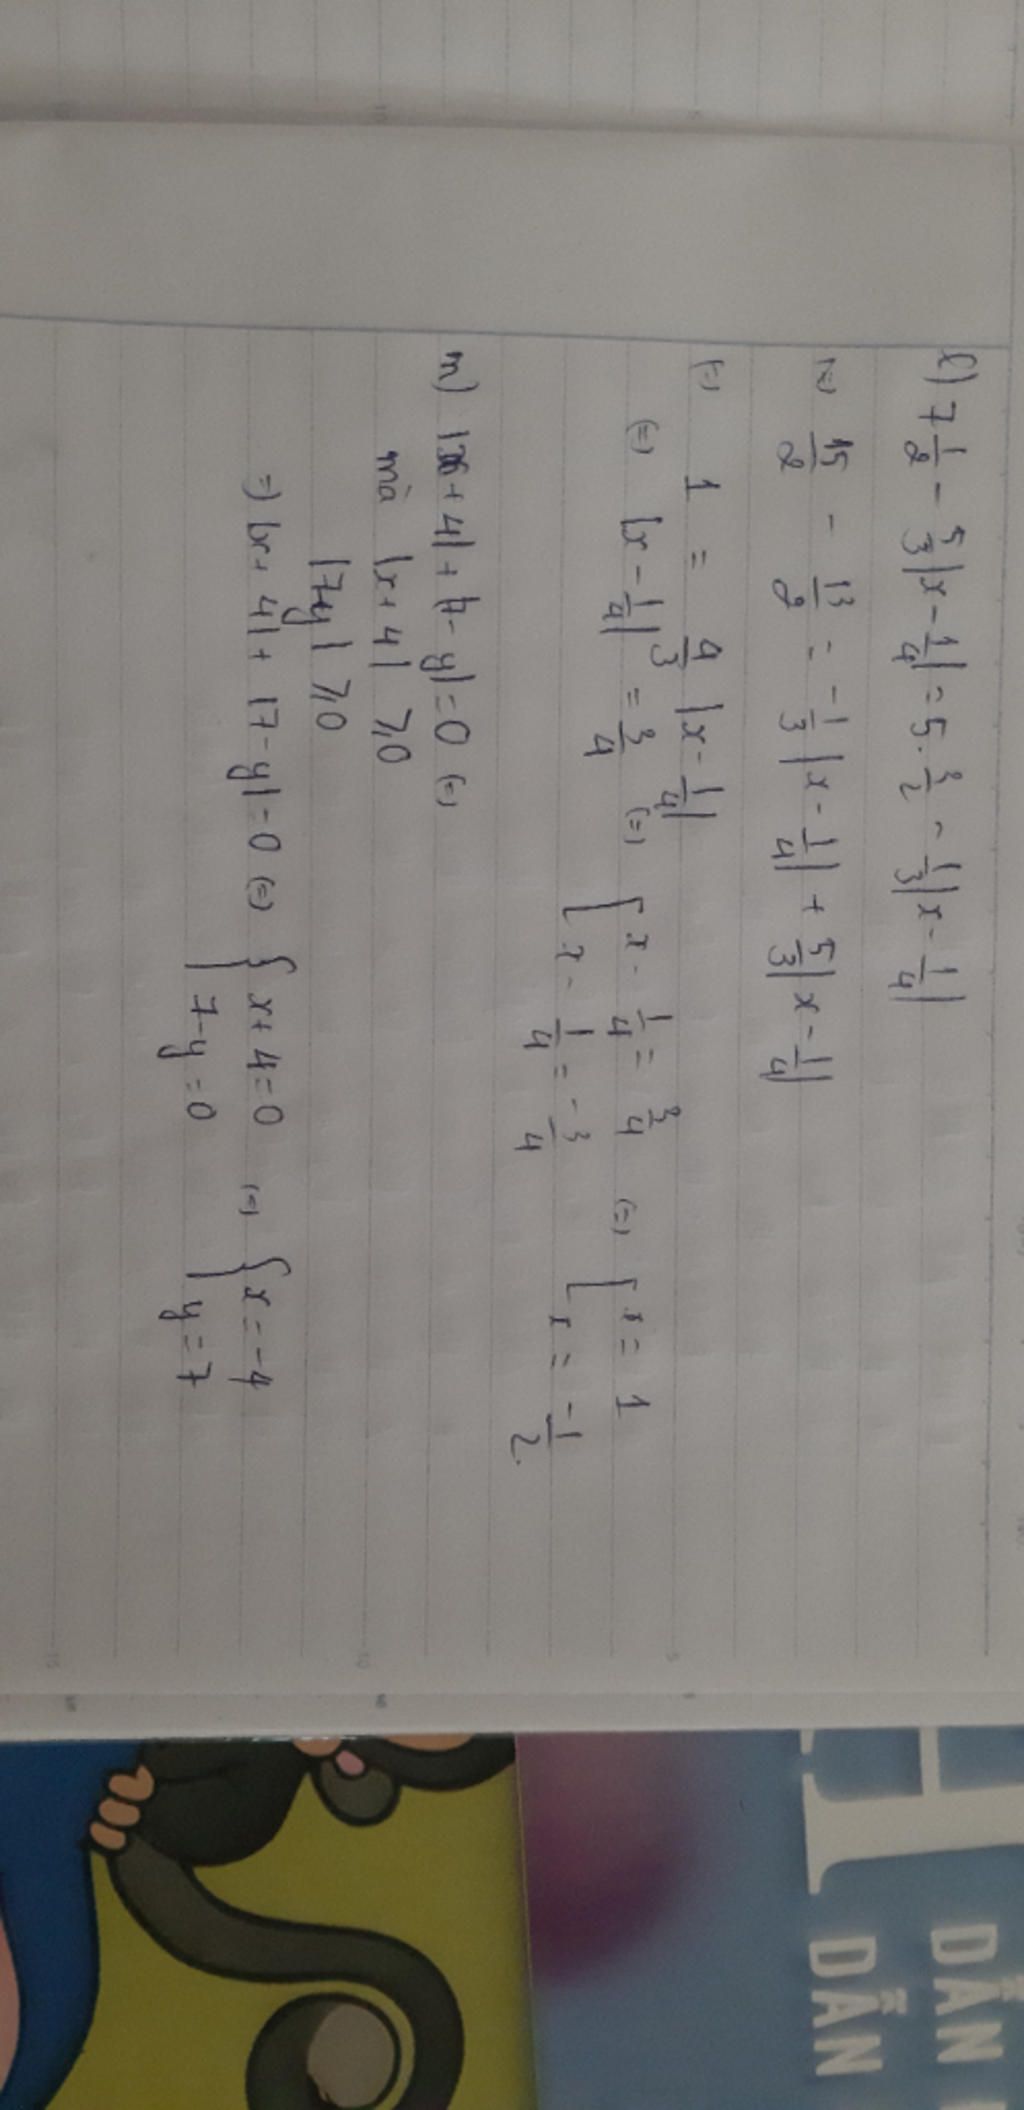 l) 7 1/2 - 5/3 |x - 1/4| = 5. 3/2 - 1/3 |x - 1/4|
(=) 15/2 - 13/2 = -1/3 |x - 1/4| + 5/3 |x - 1/4|
(=) 1 = 4/3 |x - 1/4|
(=) |x - 1/4| = 3/4 (=) [ x - 1/4 = 3/4 (=) [ x = 1
x - 1/4 = -3/4 x = -1/2.
m) |x + 4| + |7 - y| = 0 (=)
mà |x + 4| ⩾ 0
|7-y| ⩾ 0
=) |x + 4| + |7 - y| = 0 (=) { x + 4 = 0 (=) { x = -4
7 - y = 0 y = 7
DẪN
DẪN